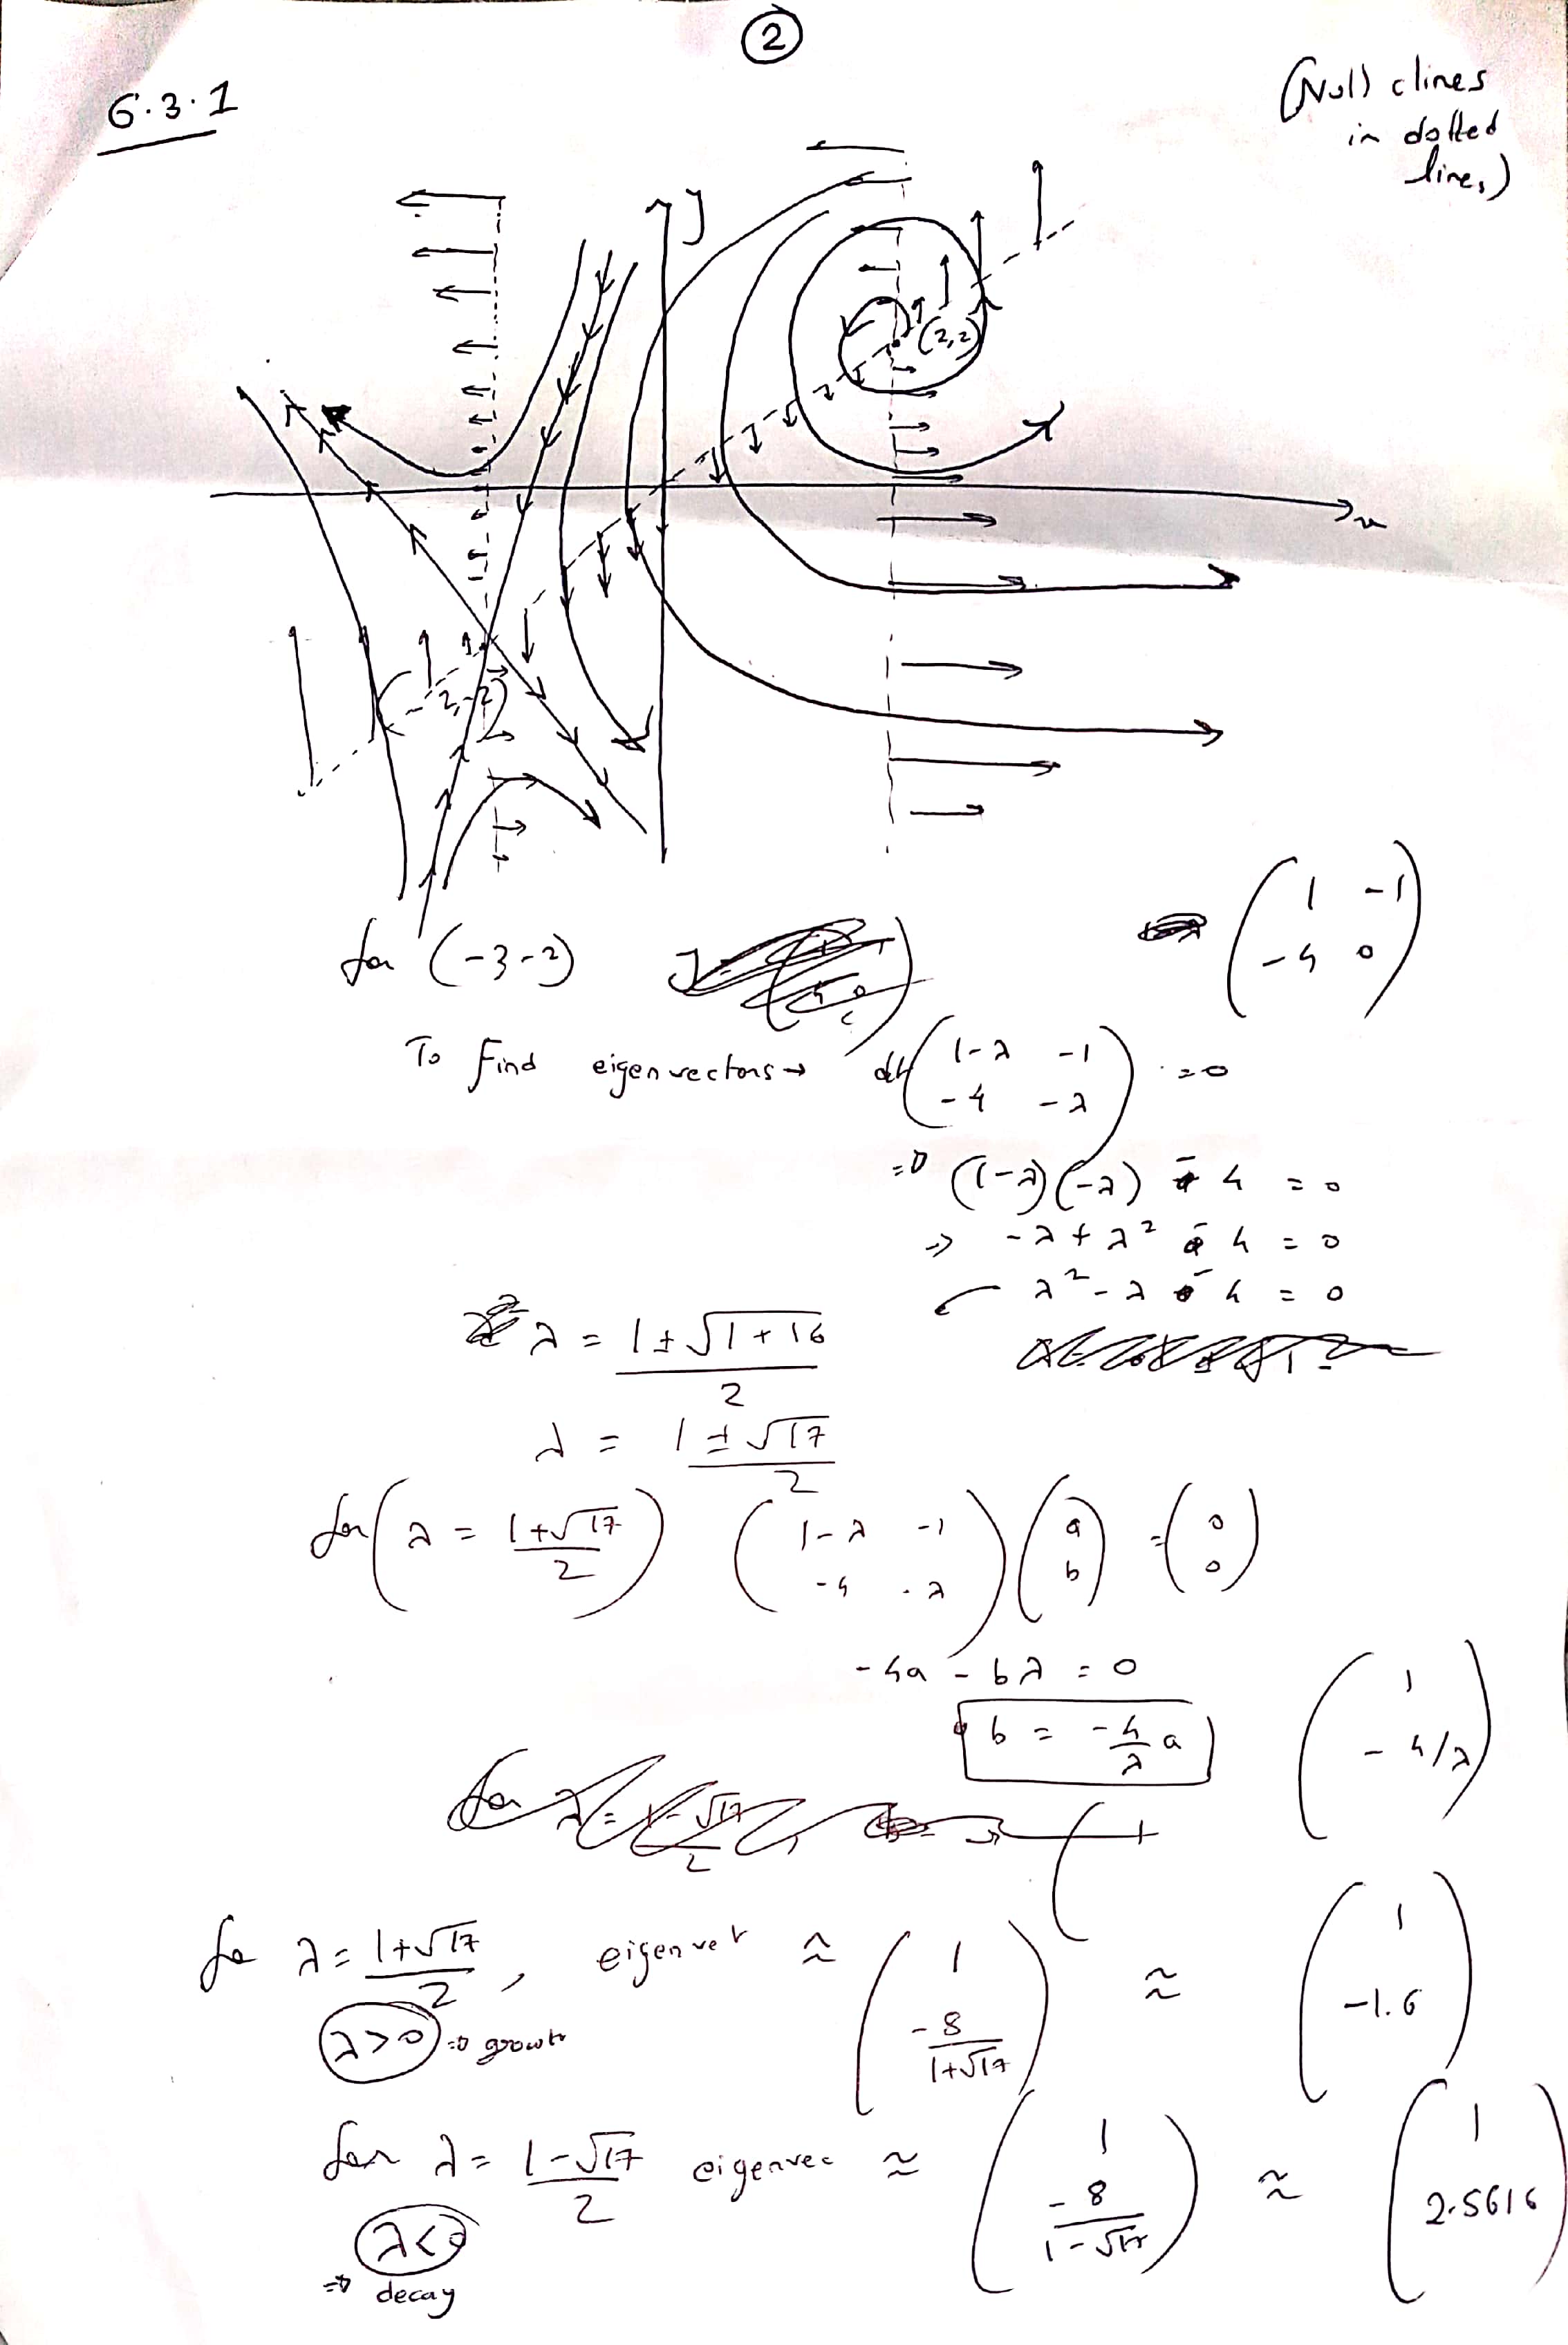 ②
6.3.1
(Null clines
in dotted
lines)
y
(2,2)
x
(-2,-2)
for (-3-2)
( 1 -1
-4 0 )
To find eigenvectors → det ( 1-λ -1
-4 -λ ) = 0
⇒ (1-λ)(-λ) - 4 = 0
⇒ -λ + λ² - 4 = 0
λ² - λ - 4 = 0
λ = 1 ± √1+16 / 2
λ = 1 ± √17 / 2
for ( λ = 1+√17 / 2 ) ( 1-λ -1
-4 -λ ) ( a
b ) = ( 0
0 )
-4a - bλ = 0
b = -4/λ a
( 1
-4/λ )
for λ = 1+√17 / 2 , eigenvet ≈ ( 1
-8 / 1+√17 ) ≈ ( 1
-1.6 )
λ>0 ⇒ growth
for λ = 1-√17 / 2 eigenvec ≈ ( 1
-8 / 1-√17 ) ≈ ( 1
2.5616 )
λ<0
⇒ decay